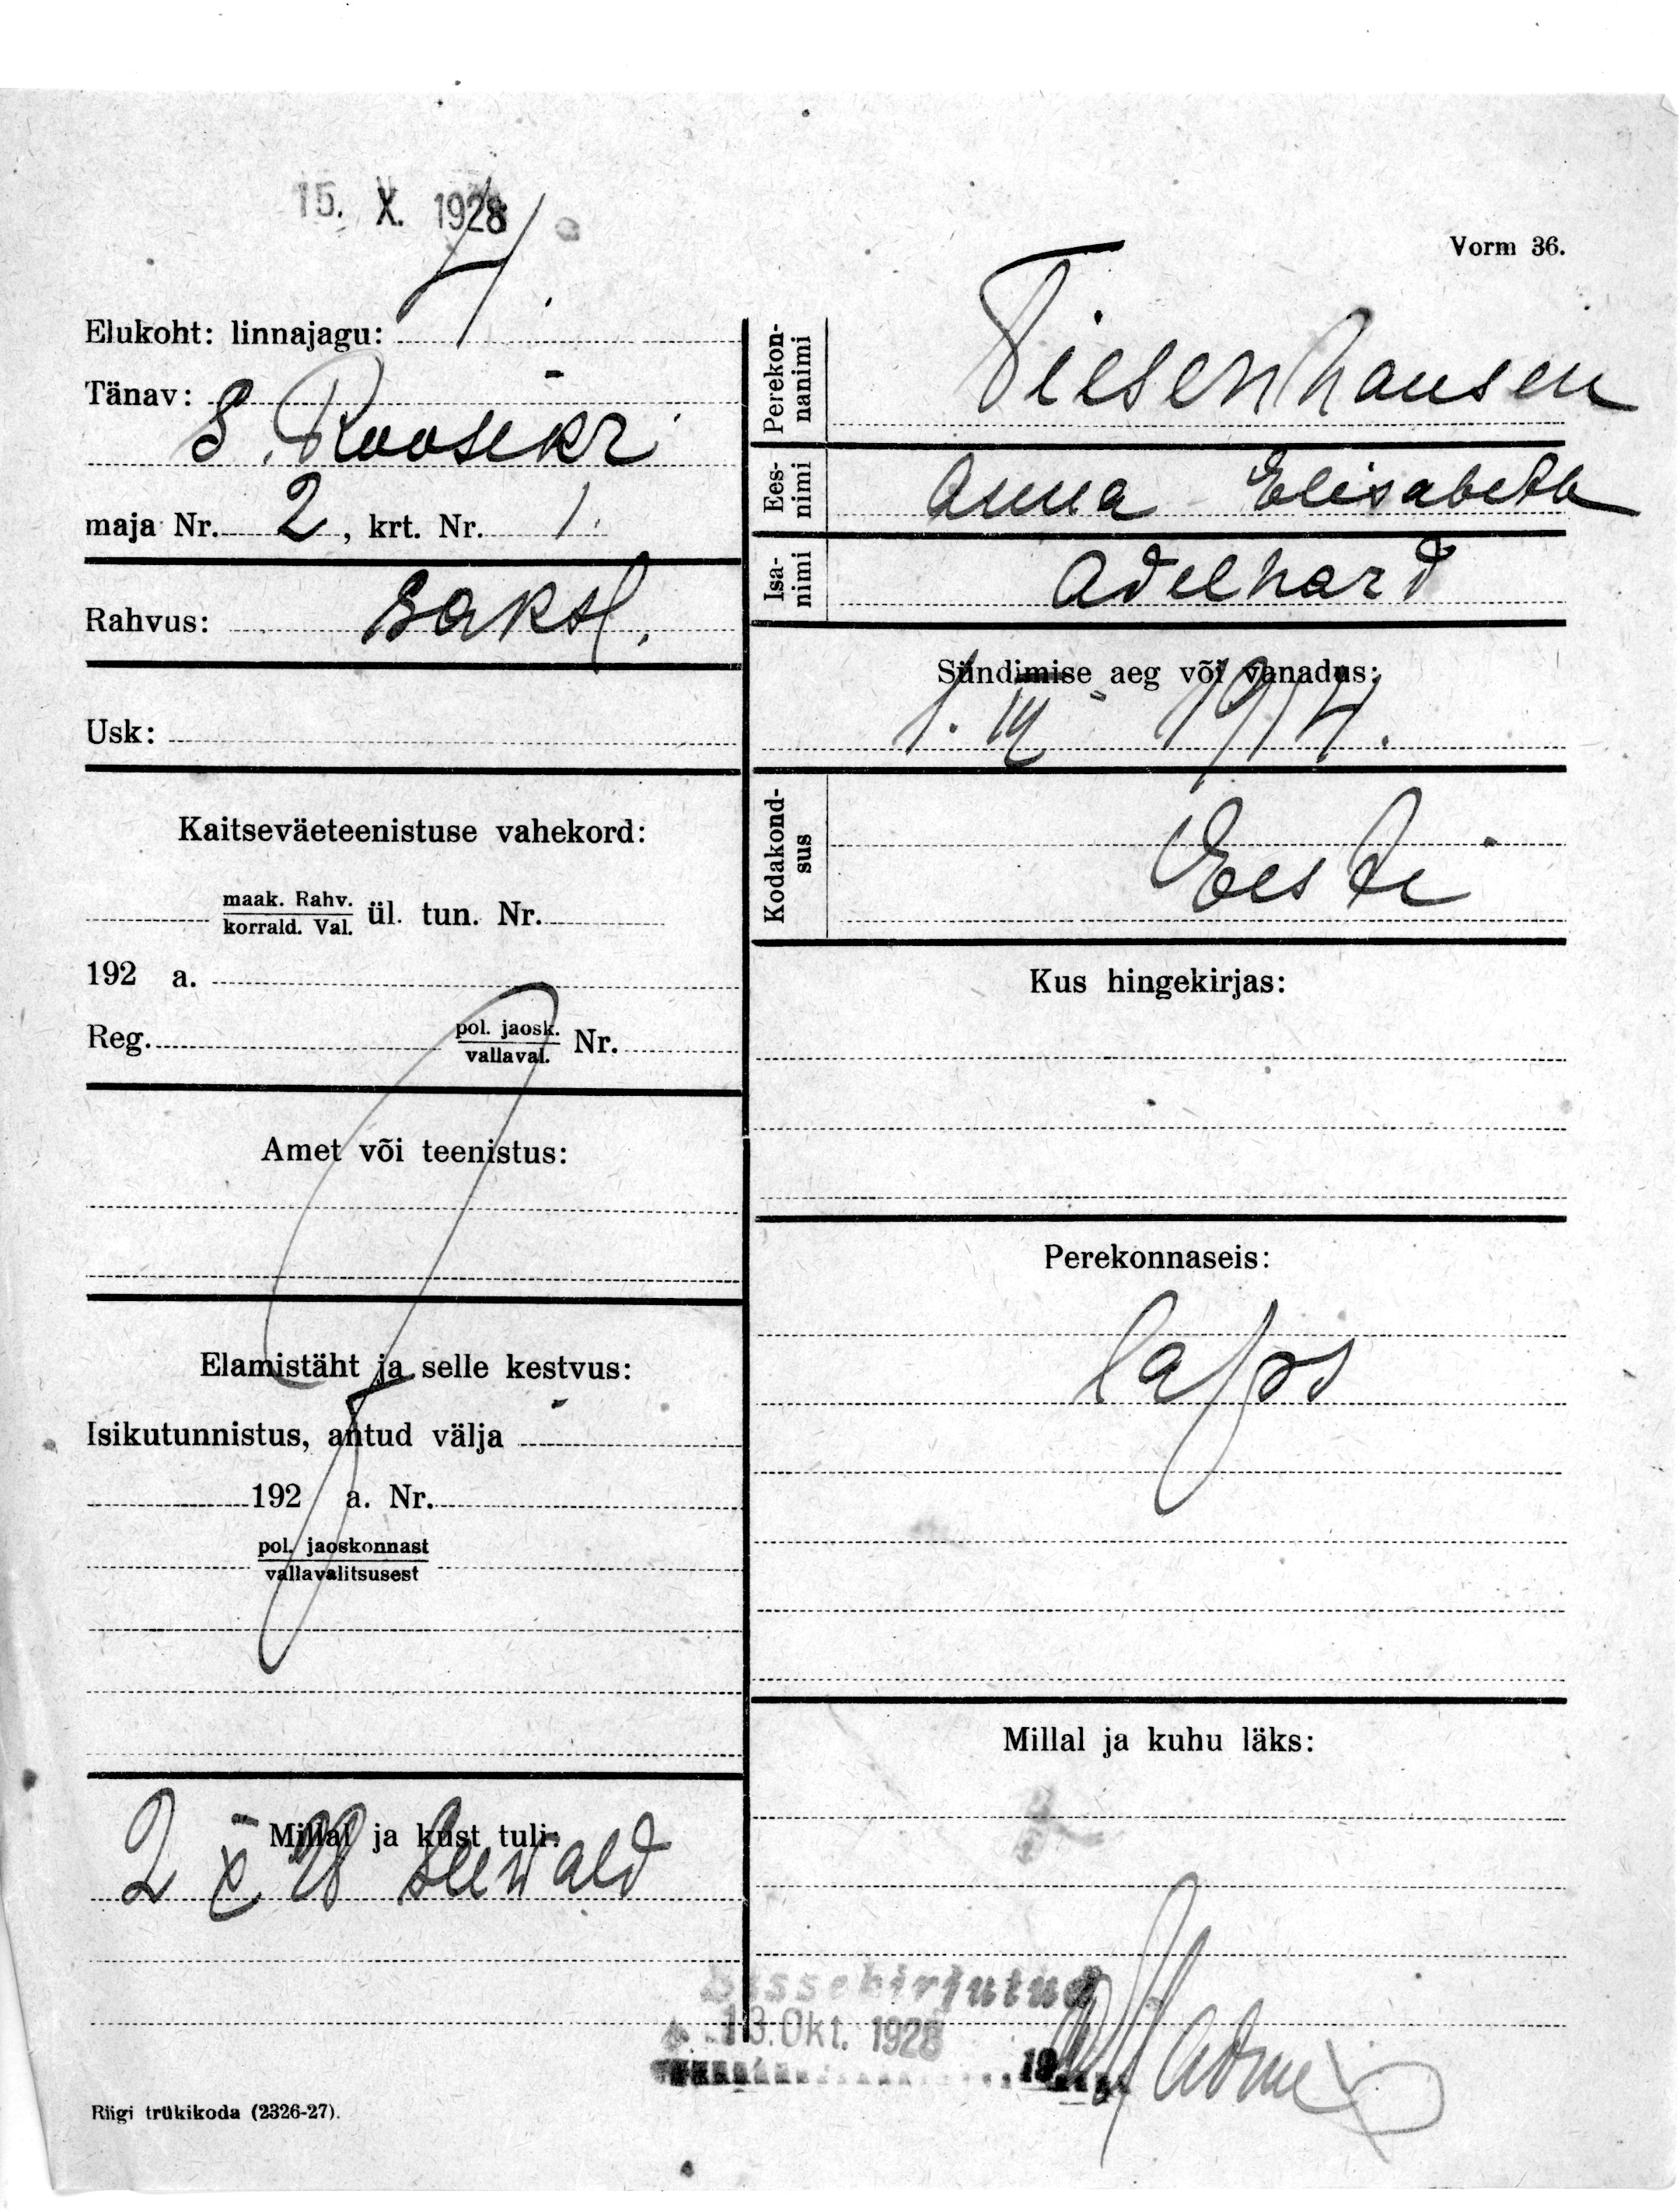 15. X. 1928
Vorm 36.
Elukoht: linnajagu: 4
Tänav:
S. Roosikr
maja Nr. 2, krt. Nr. 1.
Rahvus: saksl.
Usk:
Kaitseväeteenistuse vahekord:
maak. Rahv.
korrald. Val. ül. tun. Nr.
192 a.
Reg. pol. jaosk.
vallaval. Nr.
Amet või teenistus:
Elamistäht ja selle kestvus:
Isikutunnistus, antud välja
192 a. Nr.
pol. jaoskonnast
vallavalitsusest
Millal ja kust tuli:
2 X 28 Seewald
Perekon-
nanimi
Tiesenhausen
Ees-
nimi
Anna Elisabeth
Isa-
nimi
Adelhard
Sündimise aeg või vanadus:
1914.
Kodakond-
sus
Eesti
Kus hingekirjas:
Perekonnaseis:
laps
Millal ja kuhu läks:
Sissekirjutud
13. Okt. 1928
19
Riigi trükikoda (2326-27).